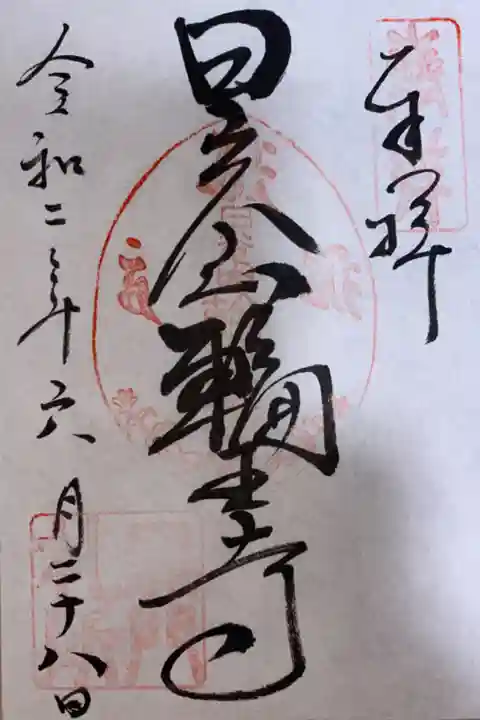 奉拝
日光山輪王寺
令和二年六月二十八日